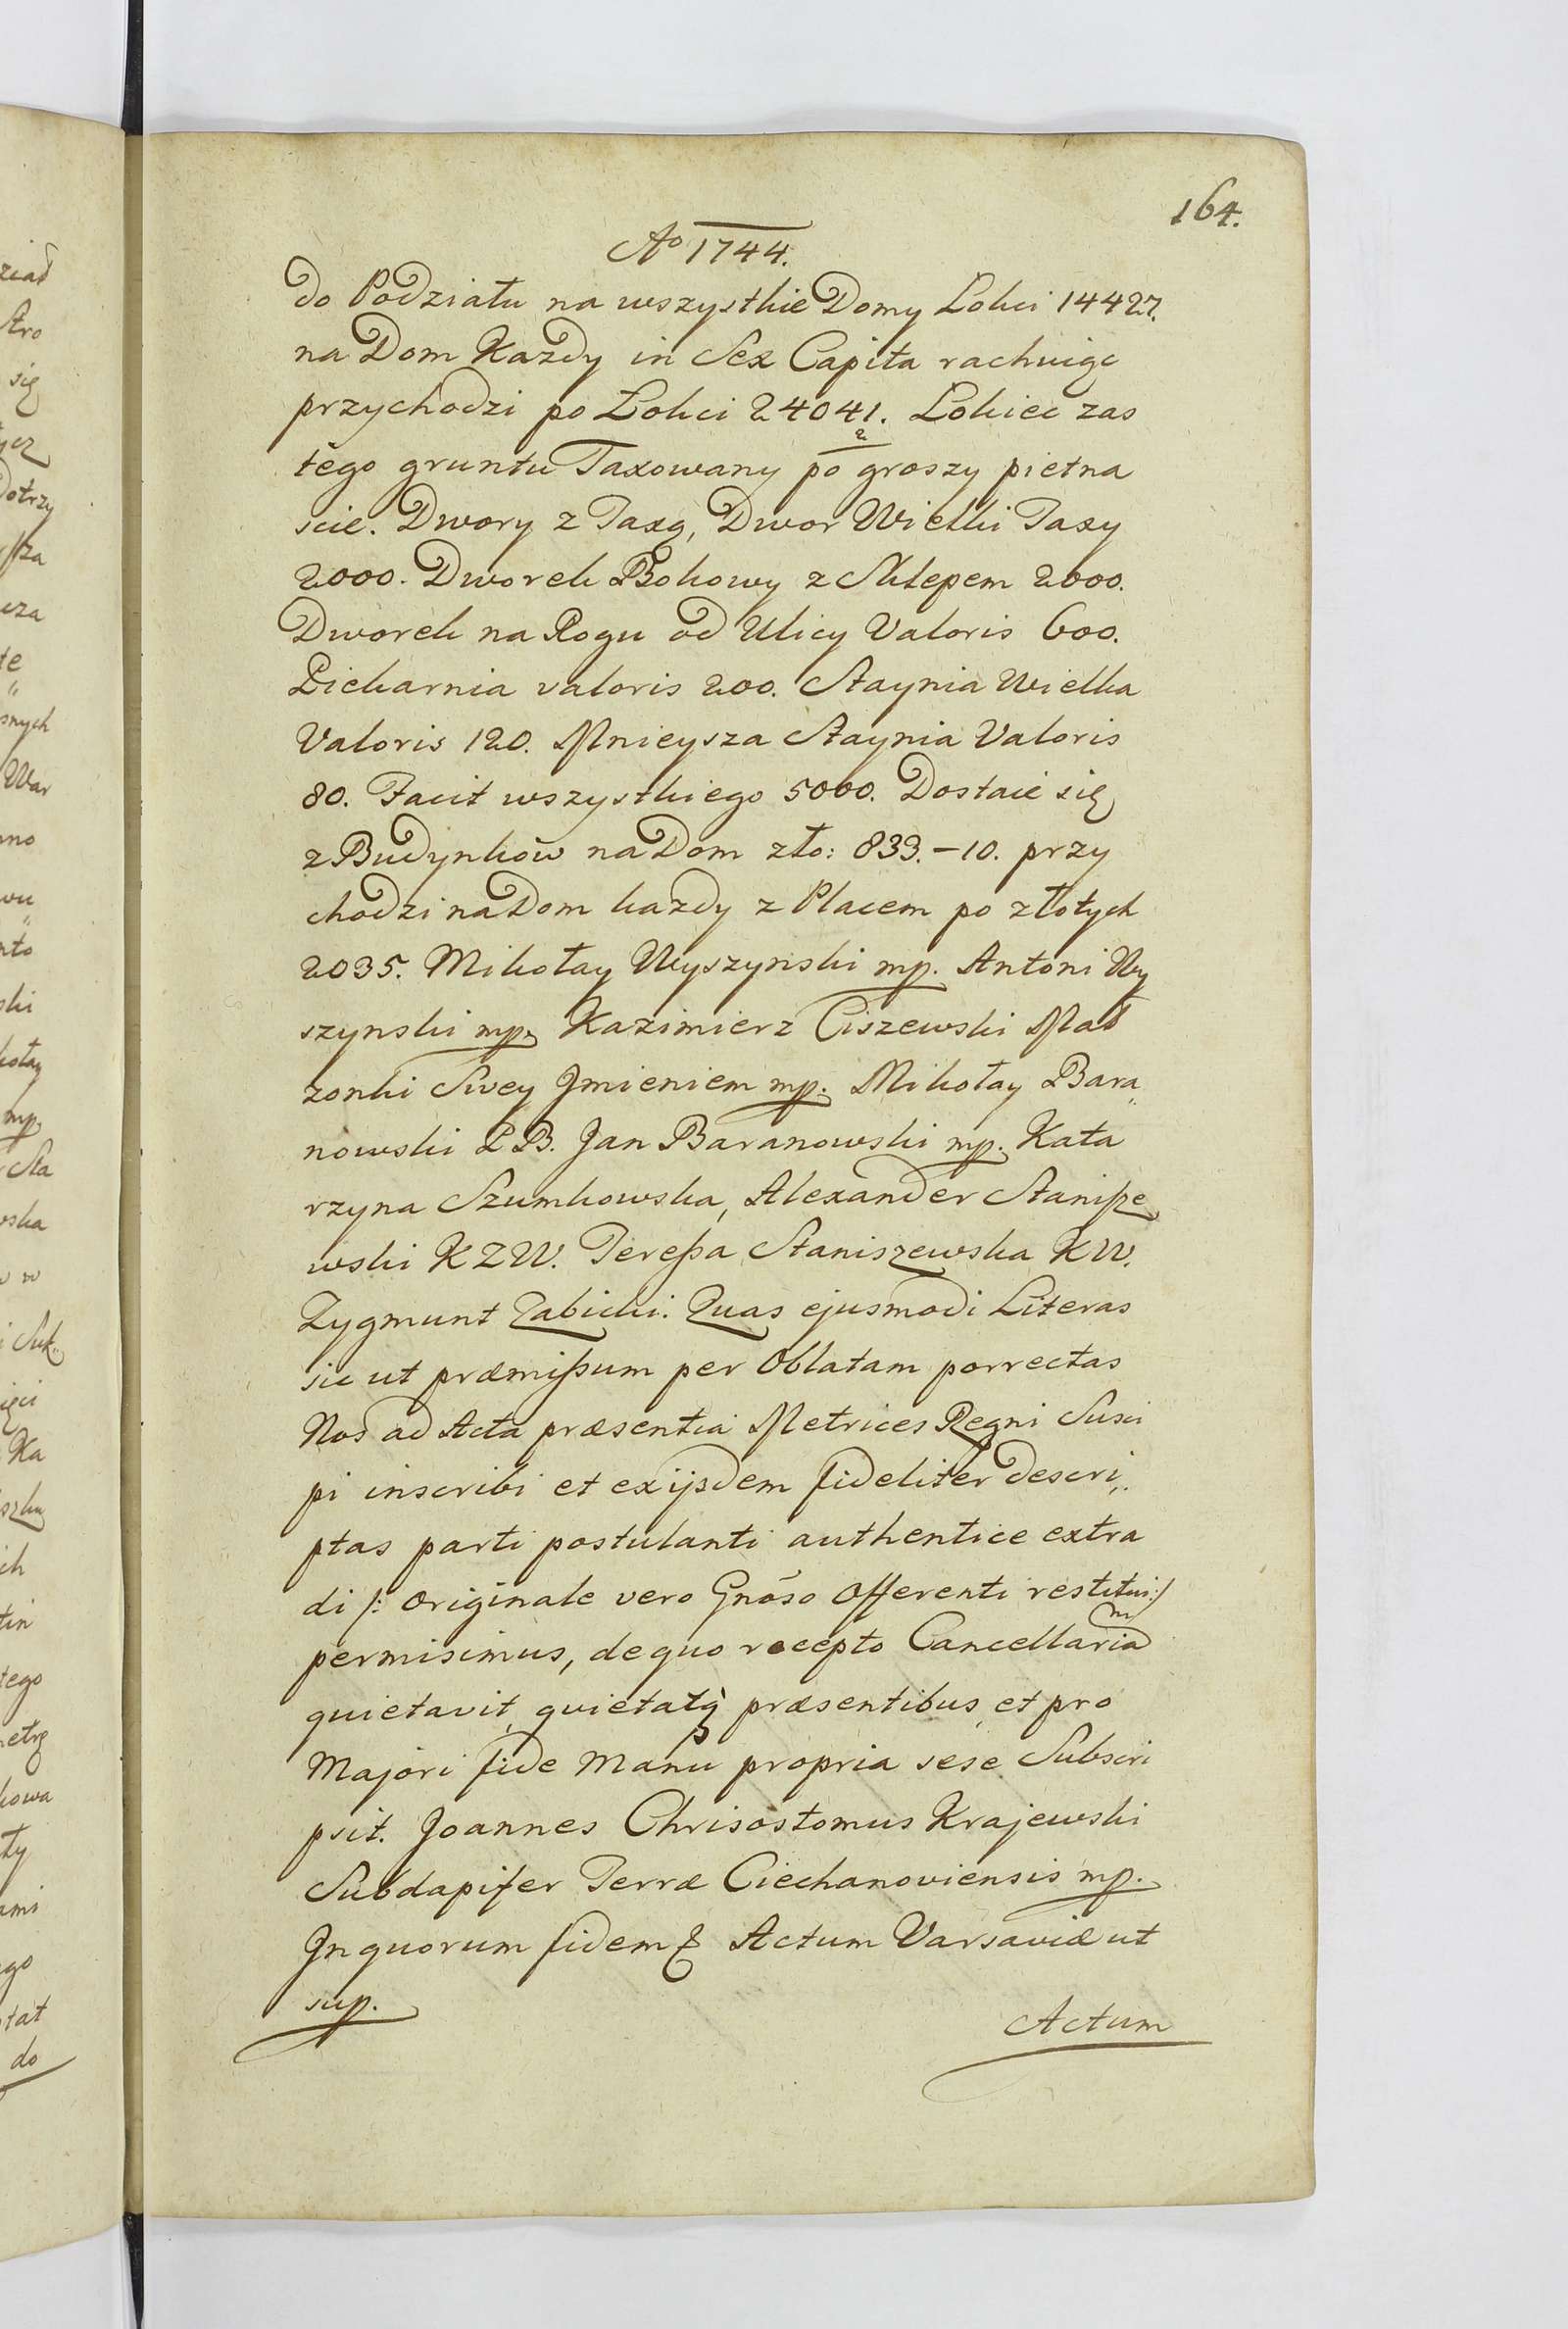 164.
Ao 1744.
do Podziału na wszystkie Domy Lokci 14427.
na Dom Kazdy in Sex Capita rachuiąc
przychodzi po Lokci 2404 1/2. Lokiec zas
tego gruntu Taxowany po groszy pietna
scie. Dwory z Taxą, Dwor Wielki Taxy
2000. Dworek Bokowy z Sklepem 2000.
Dworek na Rogu od Ulicy Valoris 600.
Piekarnia valoris 200. Staynia Wielka
Valoris 120. Mnieysza Staynia Valoris
80. Facit wszystkiego 5000. Dostaie się
z Budynków na Dom zło: 833.–10. przy
chodzi na Dom kazdy z Placem po złotych
2035. Mikołay Wyszynski mp. Antoni Wy
szynski mp. Kazimierz Ciszewski Mał
zonki Swey Jmieniem mp. Mikołay Bara„
nowski P B. Jan Baranowski mp. Kata
rzyna Szumkowska, Alexander Stanisze
wski K Z W. Teressa Staniszewska K W.
Zygmunt Zabicki. Quas ejusmodi Literas
sic ut præmissum per Oblatam porrectas
Nos ad Acta præsentia Metrices Regni Susci
pi inscribi et ex ijsdem fideliter descri„
ptas parti postulanti authentice extra
di /: Originale vero Gnõso Offerenti restitui :/
permisimus, de quo recepto Cancellariam
quietavit, quietatq præsentibus, et pro
Majori fide Manu propria sese Subscri
psit. Joannes Chrisostomus Krajewski
Subdapifer Terræ Ciechanoviensis mp.
Jn quorum fidem & Actum Varsaviæ ut
sup.
Actum